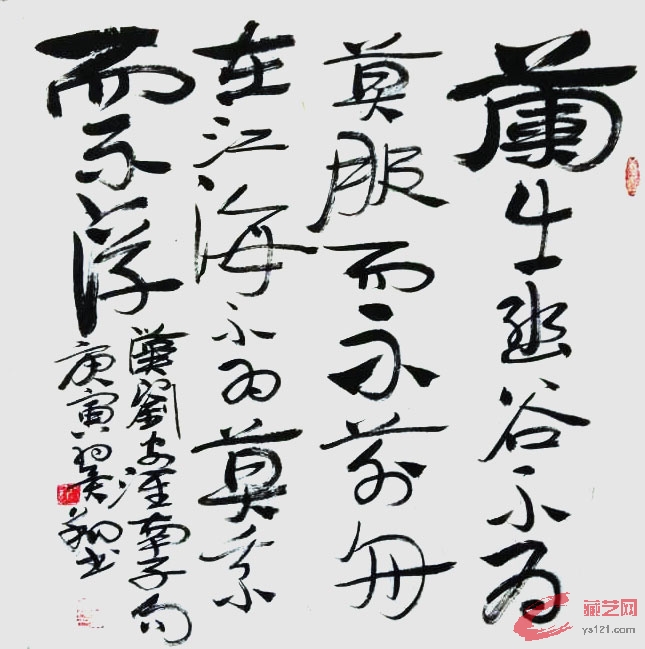 蘭生幽谷不为
莫服而不芳舟
在江海不为莫乘
而不浮
漢劉安淮南子句
庚寅书
藏艺网
ys121.com